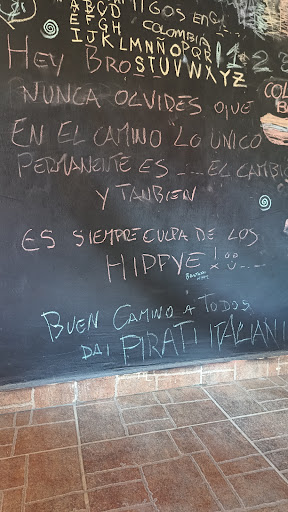 ABCD
EFGH
IJKLMNÑOPQR
STUVWXYZ
COLOMBIA
1-2
HEY BRO
NUNCA OLVIDES QUE
EN EL CAMINO LO UNICO
PERMANENTE ES ... EL CAMBIO
Y TANBIEN
ES SIEMPRE CULPA DE LOS
HIPPYE!
BUEN CAMINO A TODOS
DAI PIRATI ITALIANI